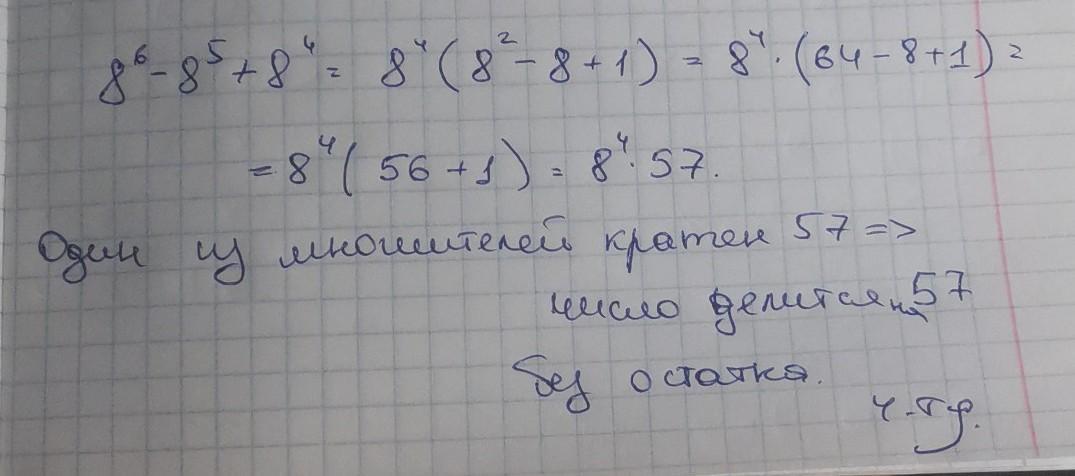 8⁶ - 8⁵ + 8⁴ = 8⁴ ( 8² - 8 + 1 ) = 8⁴ · (64 - 8 + 1) =
= 8⁴ ( 56 + 1 ) = 8⁴ · 57.
Один из множителей кратен 57 =>
число делится на 57
без остатка.
ч.тр.